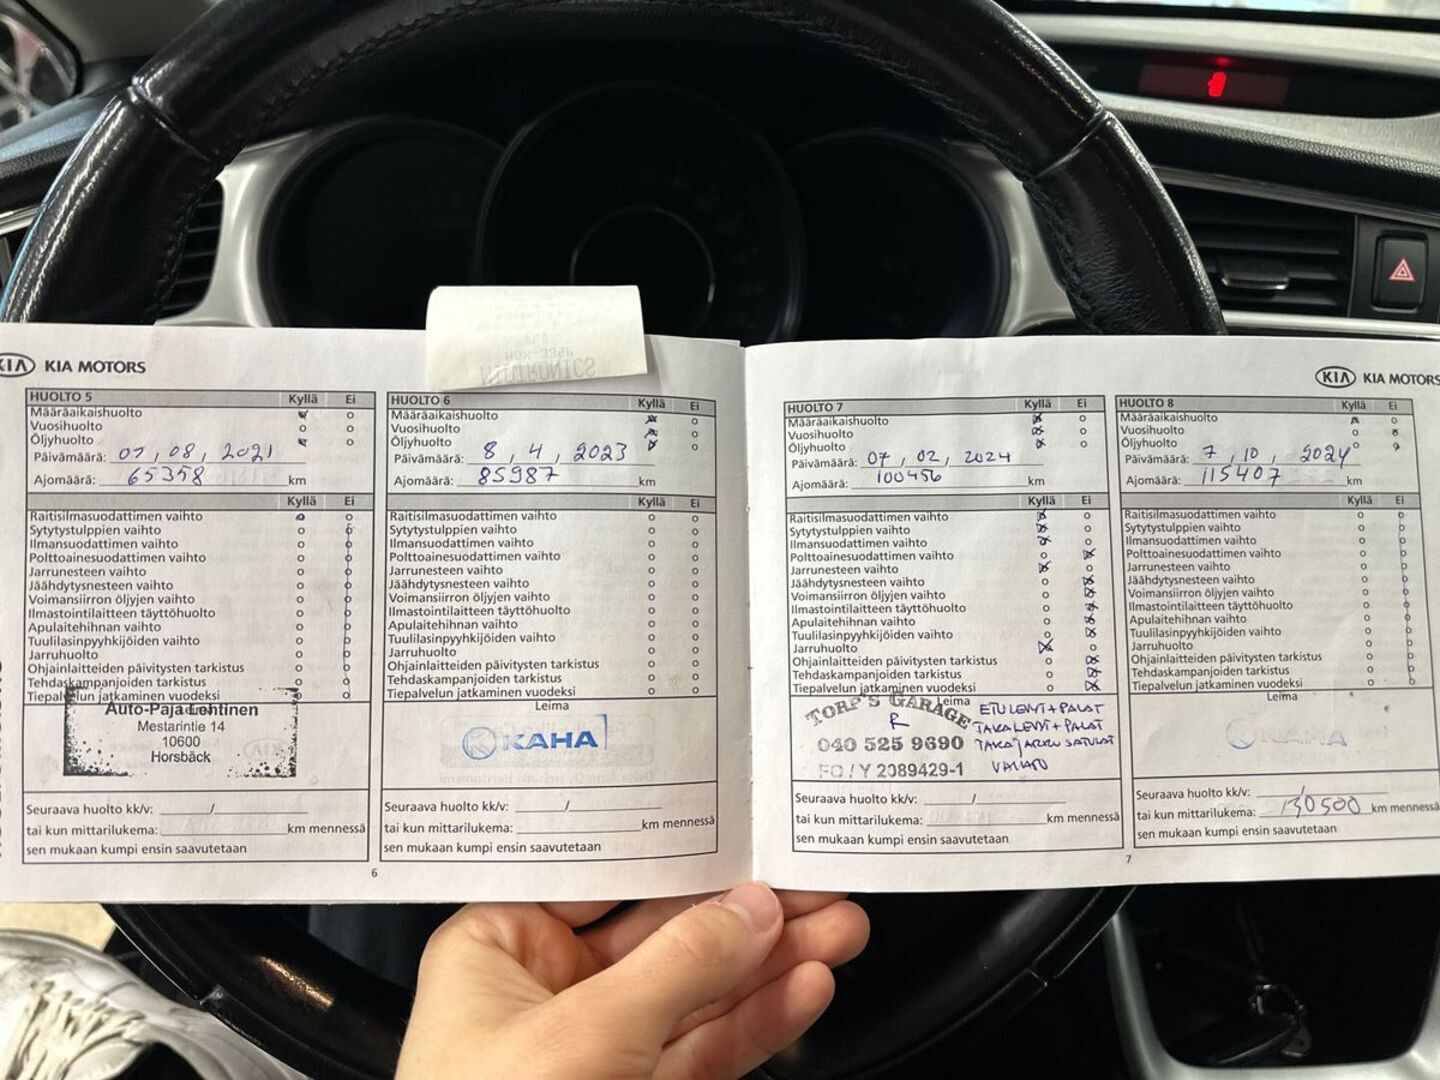 KIA KIA MOTORS
HUOLTO 5 Kyllä Ei
Määräaikaishuolto
Vuosihuolto
Öljyhuolto
Päivämäärä: 07, 08, 2021
Ajomäärä: 65358 km
Kyllä Ei
Raitisilmasuodattimen vaihto
Sytytystulppien vaihto
Ilmansuodattimen vaihto
Polttoainesuodattimen vaihto
Jarrunesteen vaihto
Jäähdytysnesteen vaihto
Voimansiirron öljyjen vaihto
Ilmastointilaitteen täyttöhuolto
Apulaitehihnan vaihto
Tuulilasinpyyhkijöiden vaihto
Jarruhuolto
Ohjainlaitteiden päivitysten tarkistus
Tehdaskampanjoiden tarkistus
Tiepalvelun jatkaminen vuodeksi
Auto-Paja Lehtinen
Mestarintie 14
10600
Horsbäck
Seuraava huolto kk/v: /
tai kun mittarilukema: km mennessä
sen mukaan kumpi ensin saavutetaan
HUOLTO 6 Kyllä Ei
Määräaikaishuolto
Vuosihuolto
Öljyhuolto
Päivämäärä: 8, 4, 2023
Ajomäärä: 85987 km
Kyllä Ei
Raitisilmasuodattimen vaihto
Sytytystulppien vaihto
Ilmansuodattimen vaihto
Polttoainesuodattimen vaihto
Jarrunesteen vaihto
Jäähdytysnesteen vaihto
Voimansiirron öljyjen vaihto
Ilmastointilaitteen täyttöhuolto
Apulaitehihnan vaihto
Tuulilasinpyyhkijöiden vaihto
Jarruhuolto
Ohjainlaitteiden päivitysten tarkistus
Tehdaskampanjoiden tarkistus
Tiepalvelun jatkaminen vuodeksi
Leima
KAHA
Seuraava huolto kk/v: /
tai kun mittarilukema: km mennessä
sen mukaan kumpi ensin saavutetaan
6
KIA KIA MOTORS
HUOLTO 7 Kyllä Ei
Määräaikaishuolto
Vuosihuolto
Öljyhuolto
Päivämäärä: 07, 02, 2024
Ajomäärä: 100456 km
Kyllä Ei
Raitisilmasuodattimen vaihto
Sytytystulppien vaihto
Ilmansuodattimen vaihto
Polttoainesuodattimen vaihto
Jarrunesteen vaihto
Jäähdytysnesteen vaihto
Voimansiirron öljyjen vaihto
Ilmastointilaitteen täyttöhuolto
Apulaitehihnan vaihto
Tuulilasinpyyhkijöiden vaihto
Jarruhuolto
Ohjainlaitteiden päivitysten tarkistus
Tehdaskampanjoiden tarkistus
Tiepalvelun jatkaminen vuodeksi
Leima
TORP'S GARAGE
R
040 525 9690
FO / Y 2089429-1
ETULEVYT + PALAT
TAKALEVYT + PALAT
TAKAJARRU SATULAT
Seuraava huolto kk/v: /
tai kun mittarilukema: km mennessä
sen mukaan kumpi ensin saavutetaan
HUOLTO 8 Kyllä Ei
Määräaikaishuolto
Vuosihuolto
Öljyhuolto
Päivämäärä: 7, 10, 2024
Ajomäärä: 115407 km
Kyllä Ei
Raitisilmasuodattimen vaihto
Sytytystulppien vaihto
Ilmansuodattimen vaihto
Polttoainesuodattimen vaihto
Jarrunesteen vaihto
Jäähdytysnesteen vaihto
Voimansiirron öljyjen vaihto
Ilmastointilaitteen täyttöhuolto
Apulaitehihnan vaihto
Tuulilasinpyyhkijöiden vaihto
Jarruhuolto
Ohjainlaitteiden päivitysten tarkistus
Tehdaskampanjoiden tarkistus
Tiepalvelun jatkaminen vuodeksi
Leima
KAHA
Seuraava huolto kk/v: /
tai kun mittarilukema: 130500 km mennessä
sen mukaan kumpi ensin saavutetaan
7